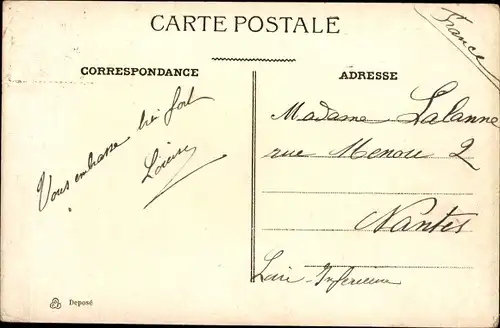 CARTE POSTALE
France
CORRESPONDANCE
ADRESSE
Vous embrasse bien fort
Louise
Madame Lalanne
rue Menou 2
Nantes
Loire-Inférieure
Deposé